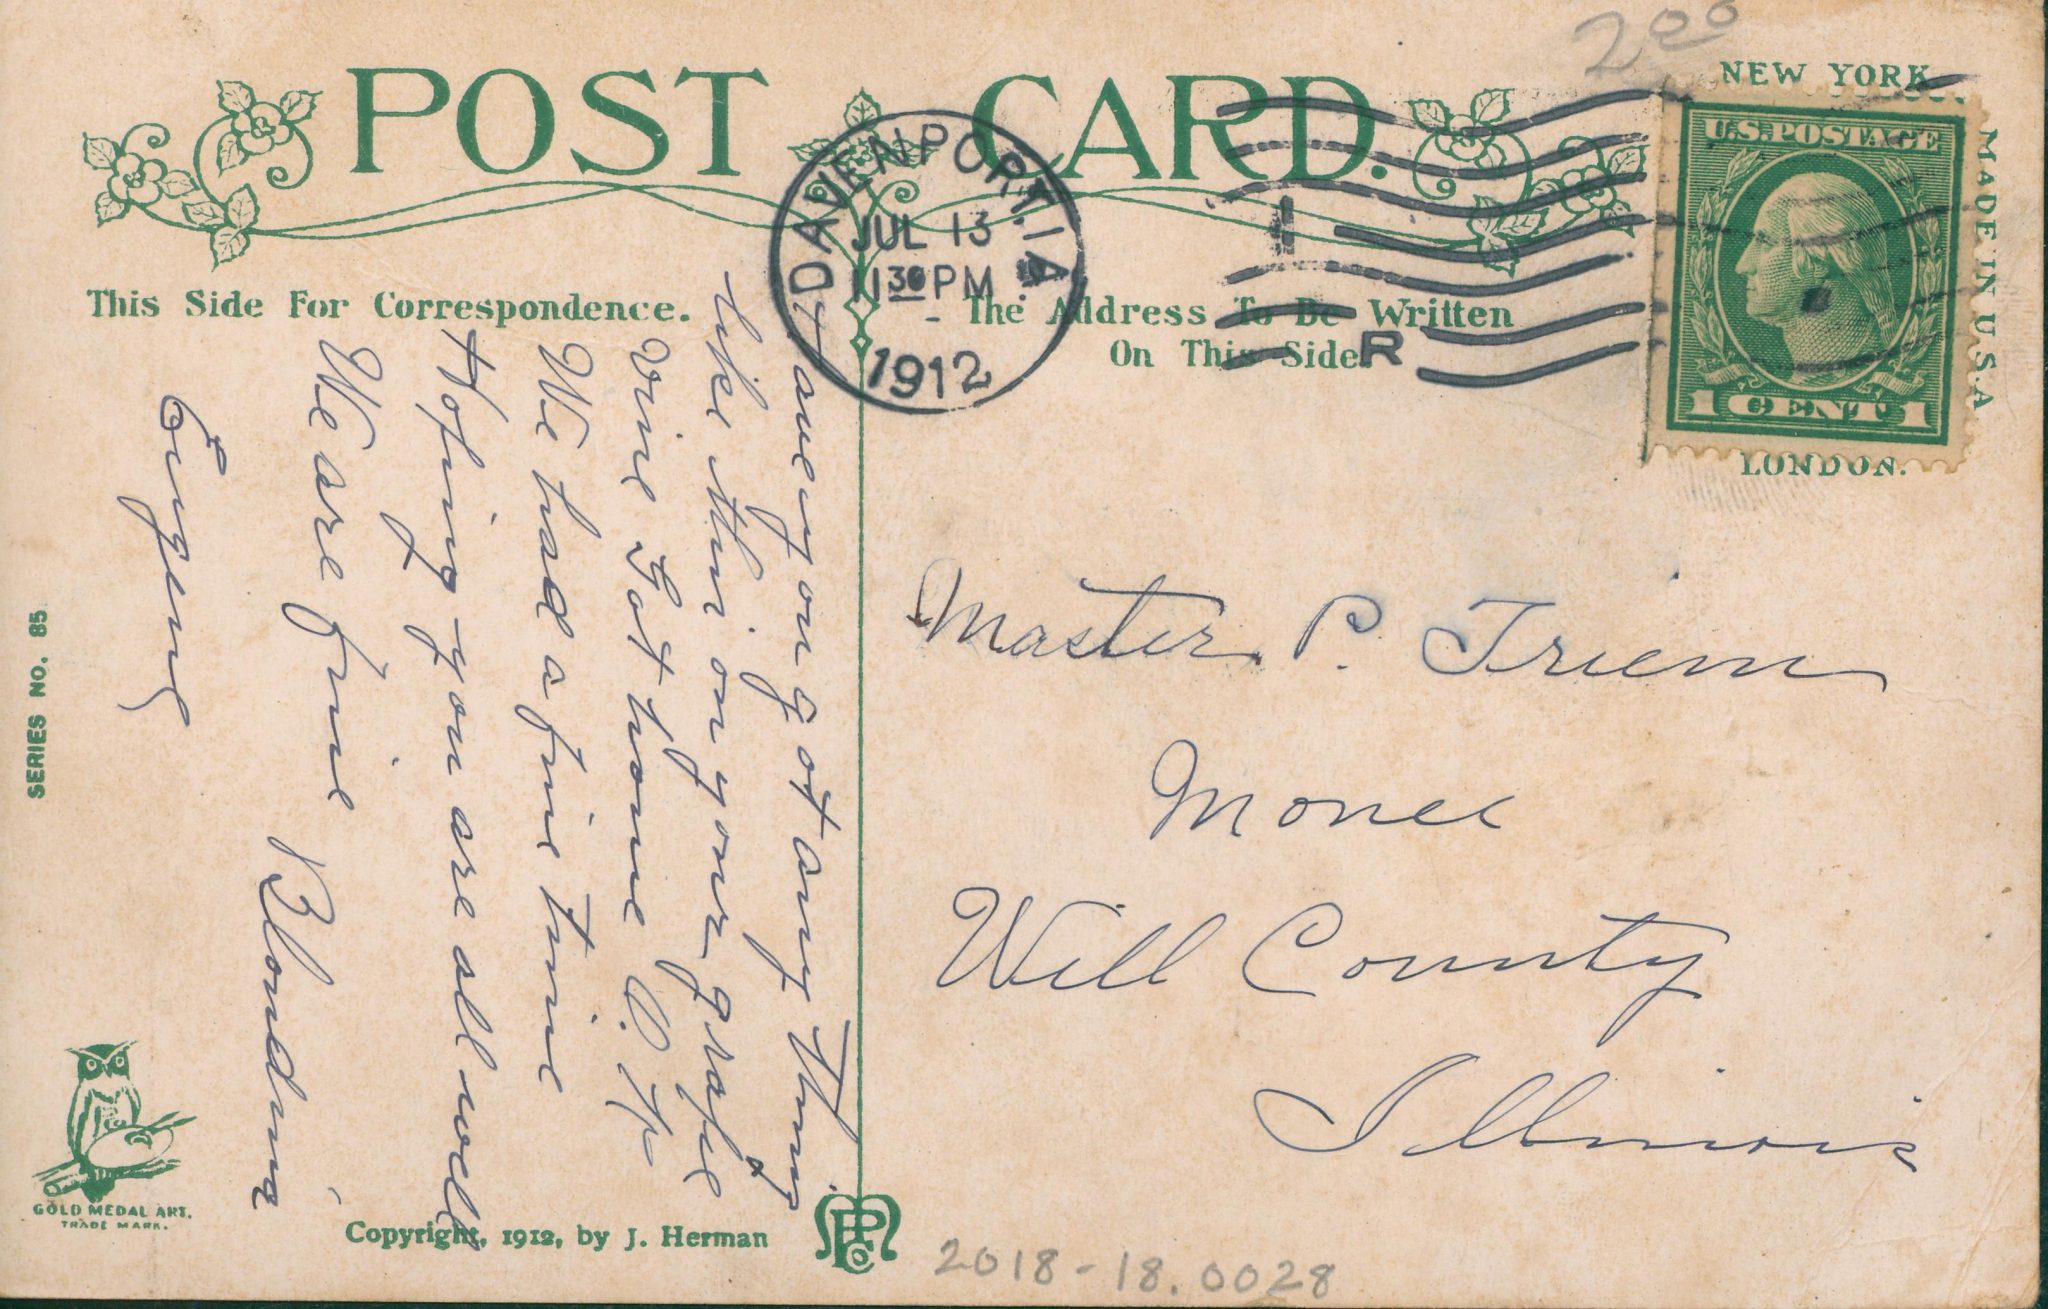 200
POST CARD.
NEW YORK
MADE IN U.S.A
LONDON.
U.S. POSTAGE
1 CENT 1
DAVENPORT, IA
JUL 13
11 30 PM
1912
R
This Side For Correspondence.
The Address To Be Written
On This Side.
Have you got any thing
like this on your grape
vine Got home O.K
We had a fine time
Hoping you are all well
We are fine
Blondina
Eugene
Master P. Triem
Monee
Will County
Illinois
SERIES NO. 85
GOLD MEDAL ART.
TRADE MARK.
Copyright, 1912, by J. Herman
2018-18.0028